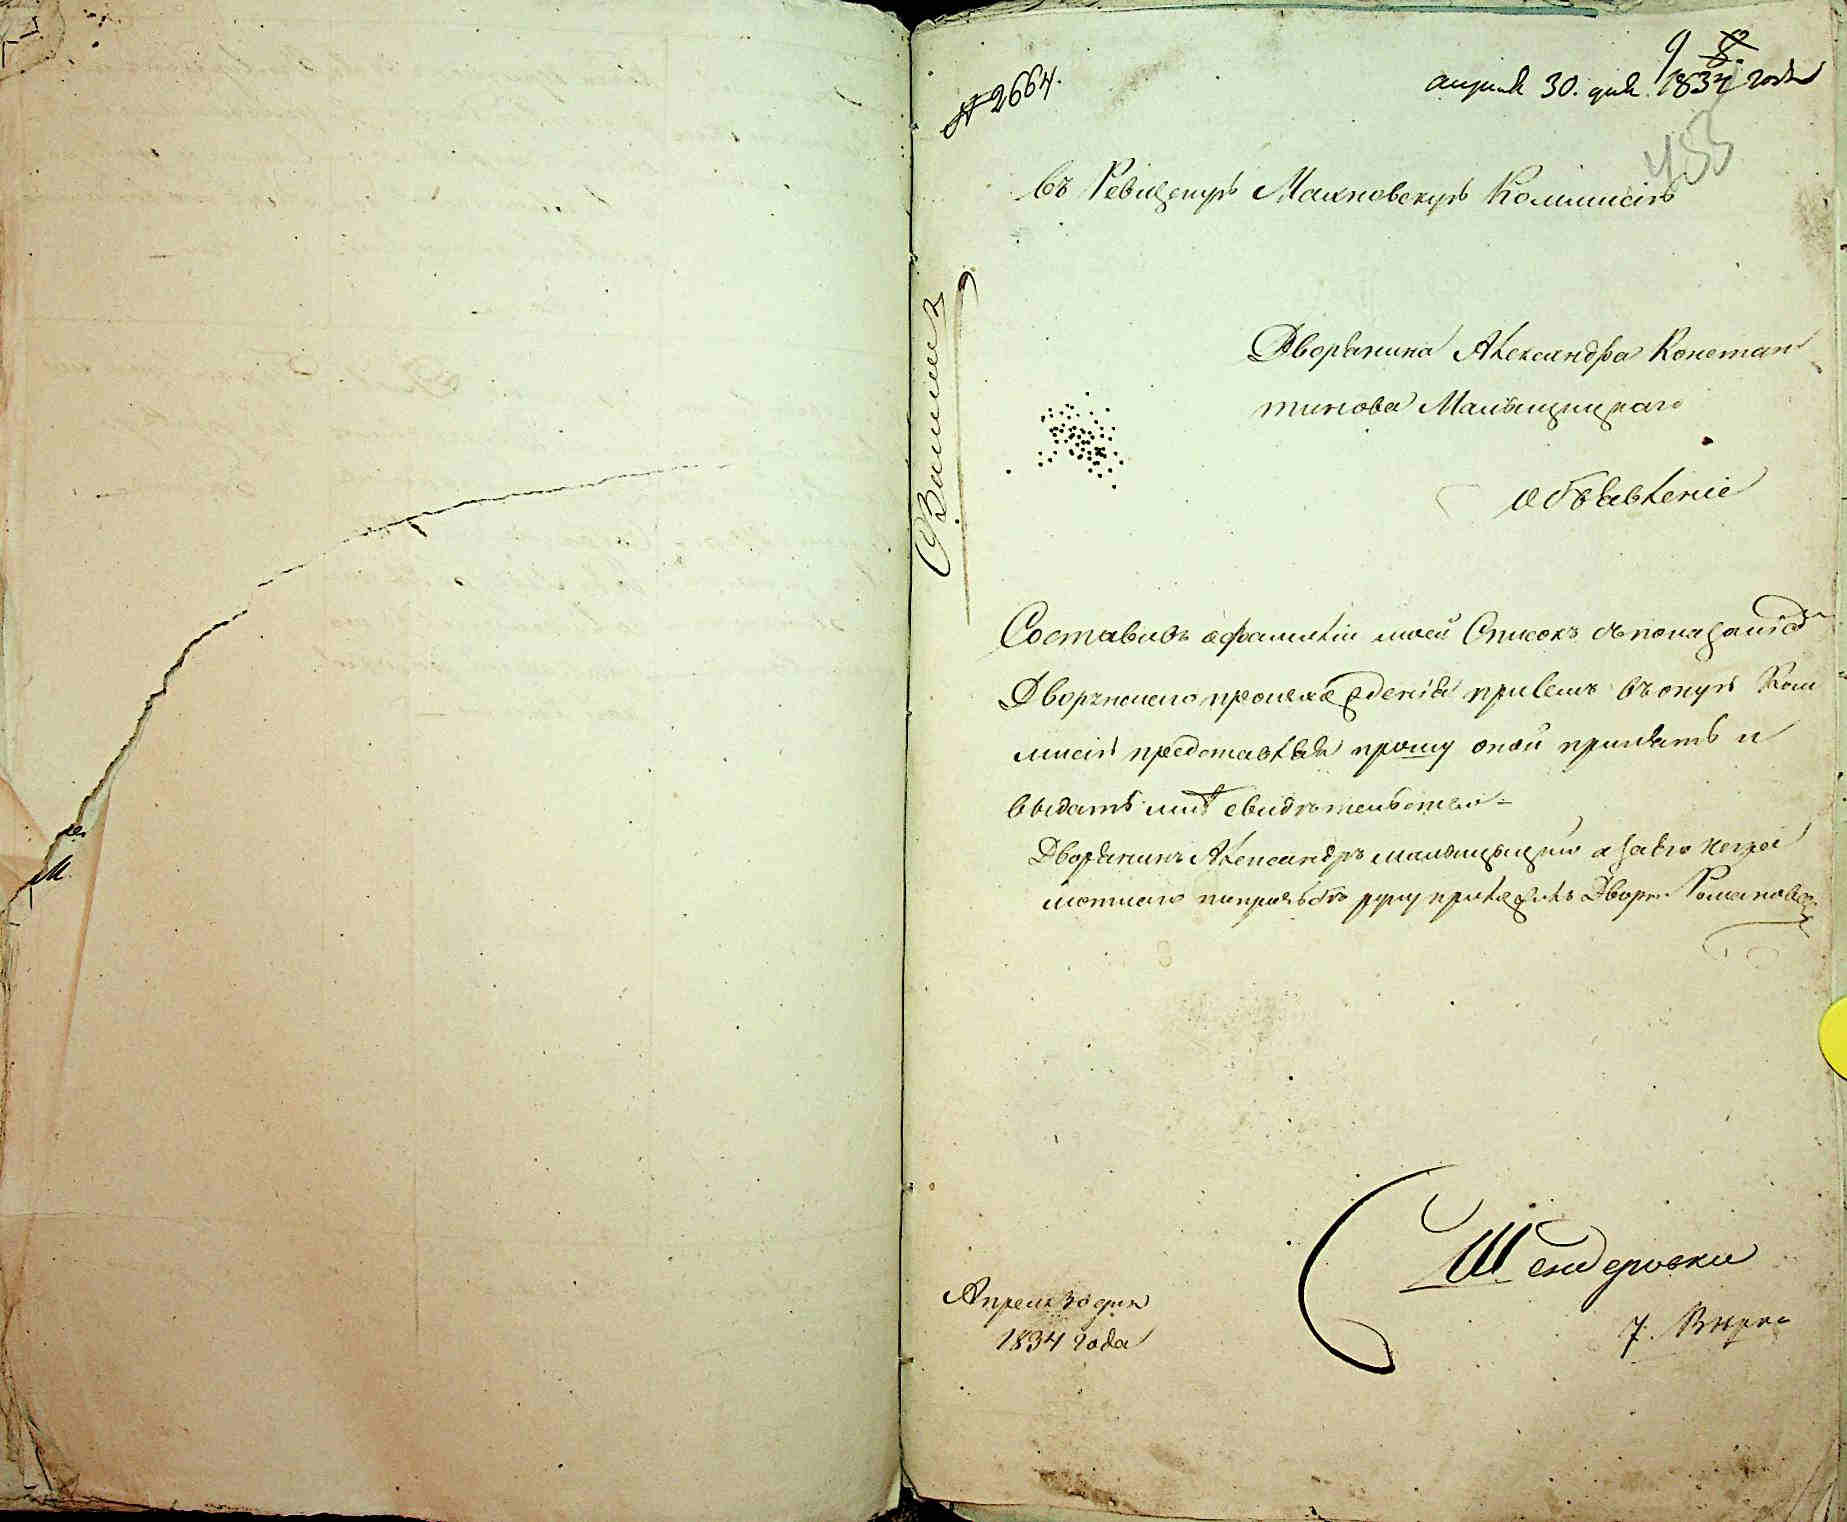 № 2664.
апреля 30. дня 1834 года
453
въ Ревизскую Махновскую Комиссию
Дворянина Александра Констан
тинова
Объявленіе
Составивъ о фамиліи моей Списокъ
Дворянскаго происхожденія при семъ въ оную Ком
мисію представляя прошу оной принять и
выдать мнѣ свидѣтельство
Дворянинъ Александръ а за его негра
мотнаго по прозьбѣ руку приложилъ Дворян.
Апреля 30 дня
1834 года